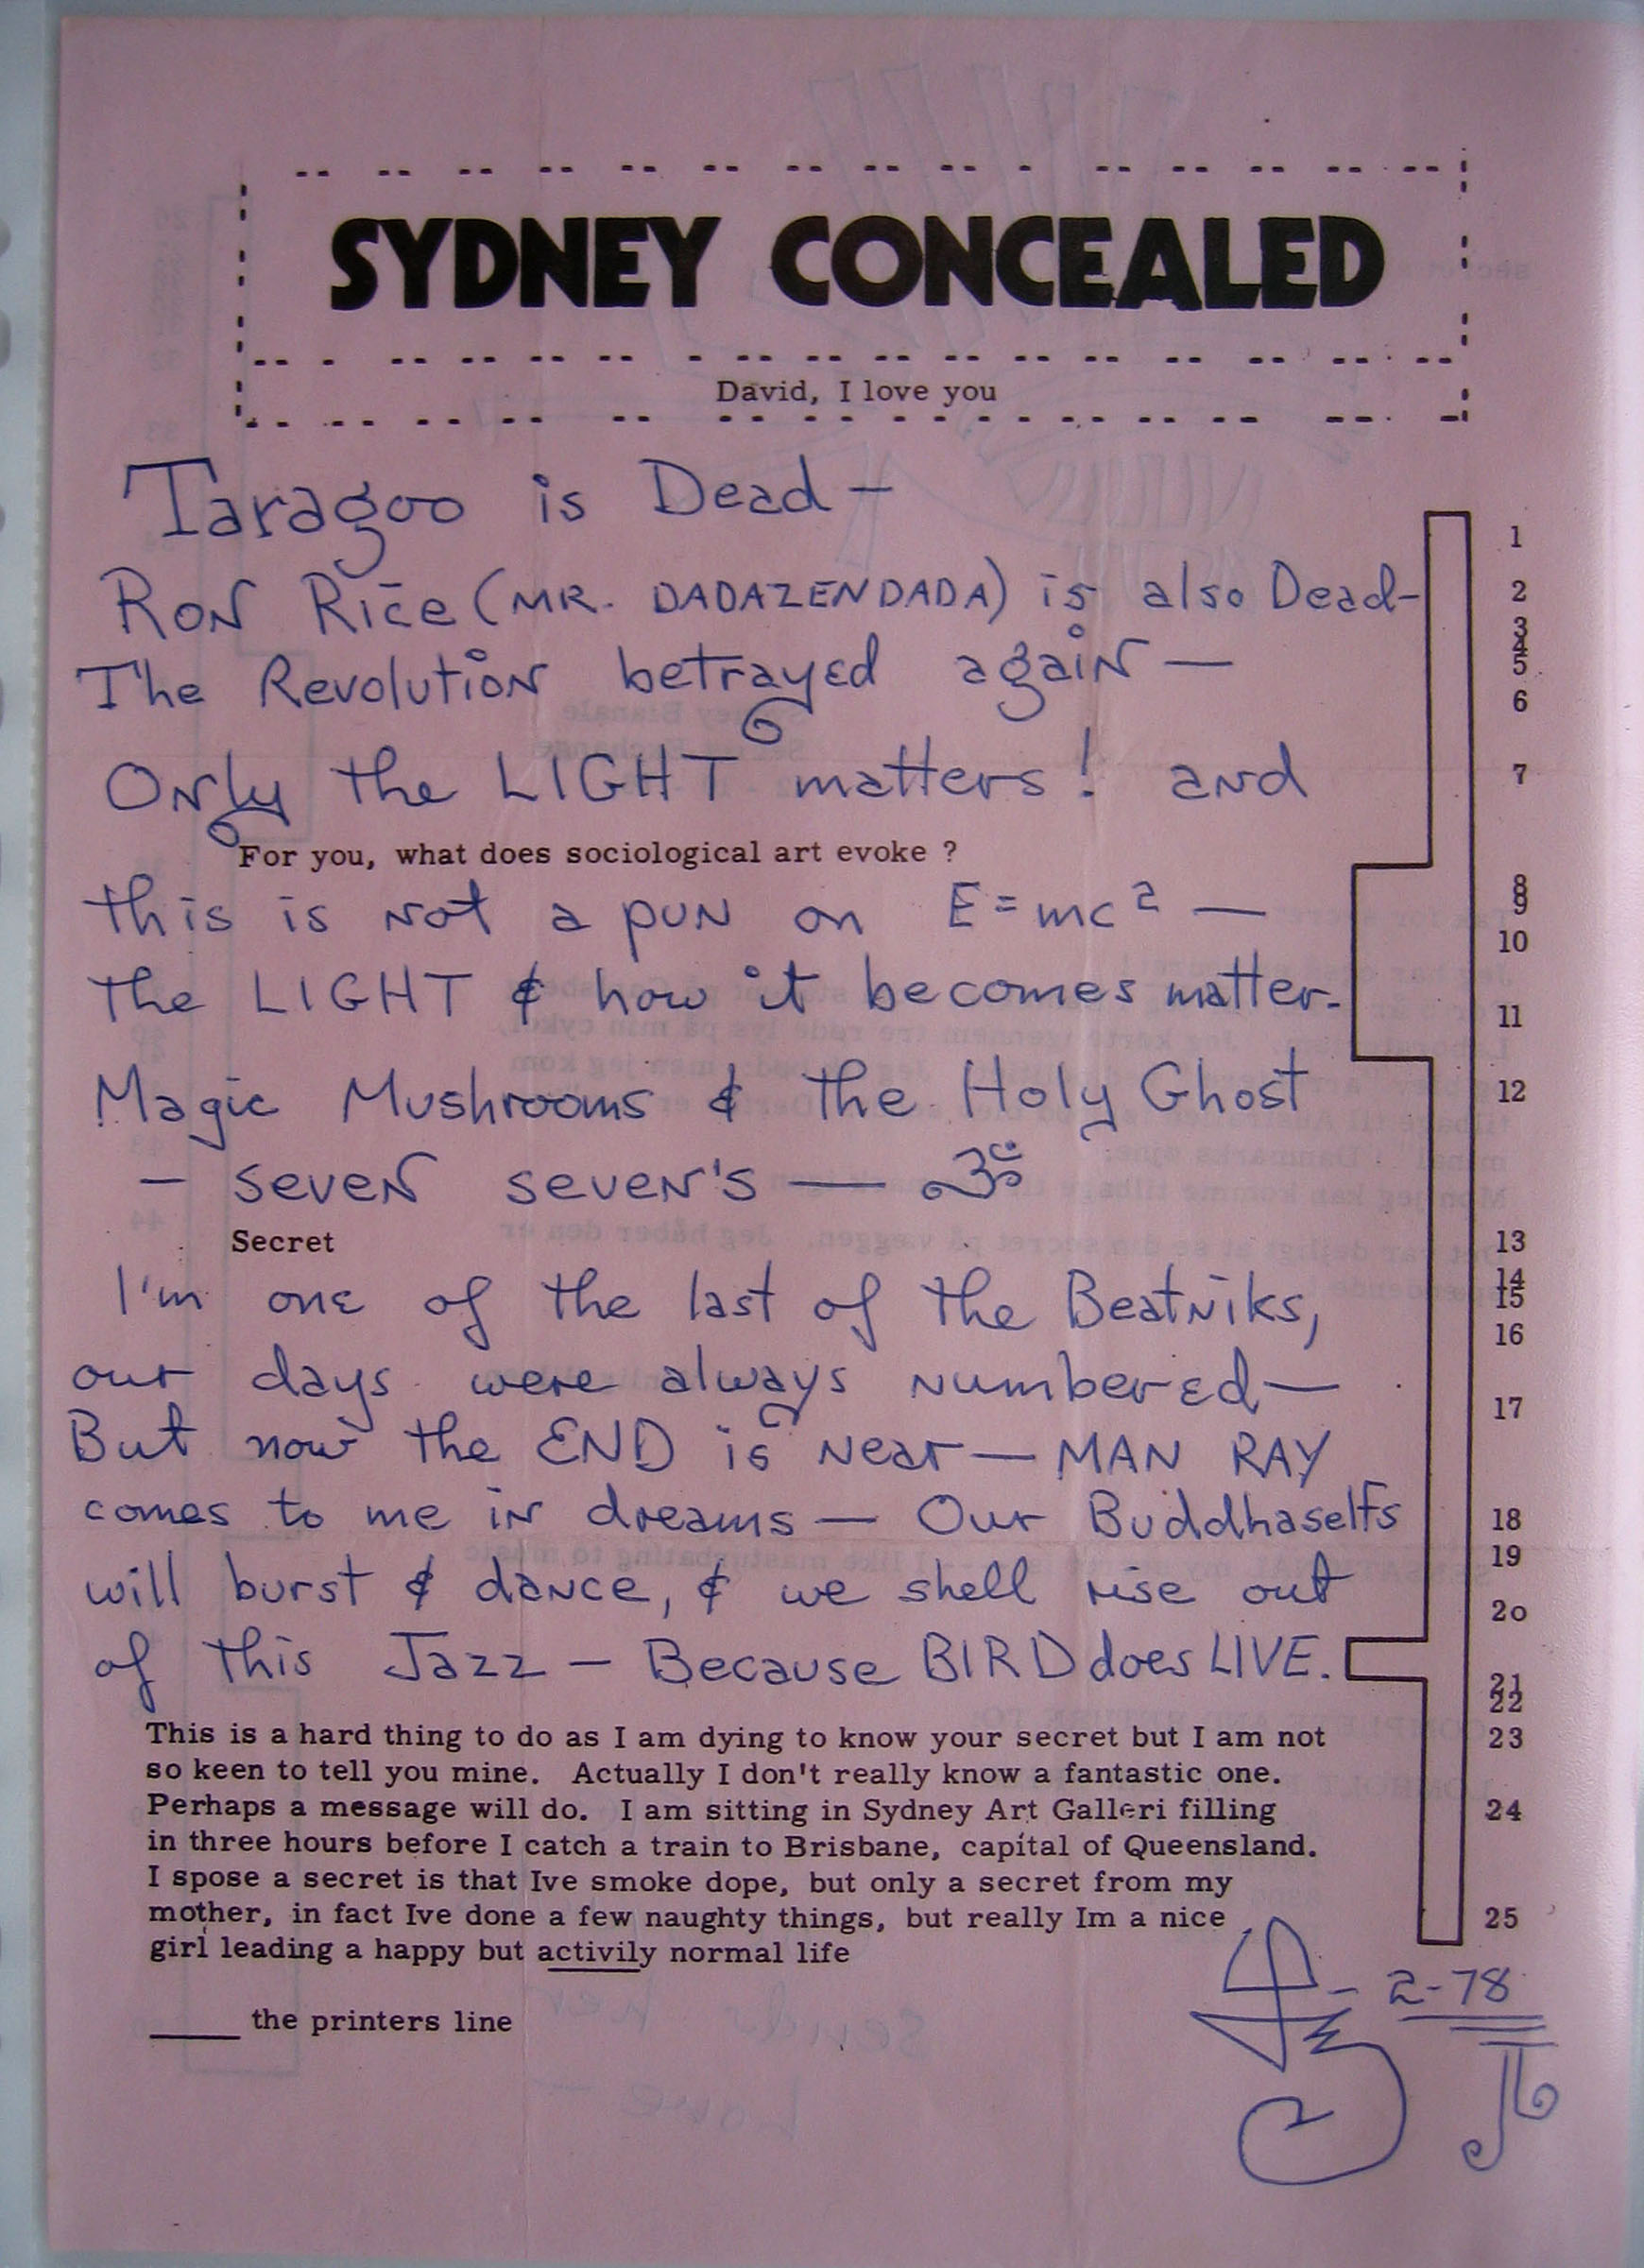 SYDNEY CONCEALED
David, I love you
Taragoo is Dead—
RON Rice (MR. DADAZENDADA) is also Dead—
The Revolution betrayed again—
Only the LIGHT matters! and
For you, what does sociological art evoke ?
this is not a pun on E=mc2 —
the LIGHT & how it becomes matter-
Magic Mushrooms & the Holy Ghost
— seven seven's — ॐ
Secret
I'm one of the last of the Beatniks,
our days were always numbered—
But now the END is near — MAN RAY
comes to me in dreams — Our Buddhaselfs
will burst & dance, & we shell rise out
of this Jazz — Because BIRD does LIVE.
This is a hard thing to do as I am dying to know your secret but I am not
so keen to tell you mine. Actually I don't really know a fantastic one.
Perhaps a message will do. I am sitting in Sydney Art Galleri filling
in three hours before I catch a train to Brisbane, capital of Queensland.
I spose a secret is that Ive smoke dope, but only a secret from my
mother, in fact Ive done a few naughty things, but really Im a nice
girl leading a happy but activily normal life
____ the printers line
2-78
1
2
3
4
5
6
7
8
9
10
11
12
13
14
15
16
17
18
19
20
21
22
23
24
25